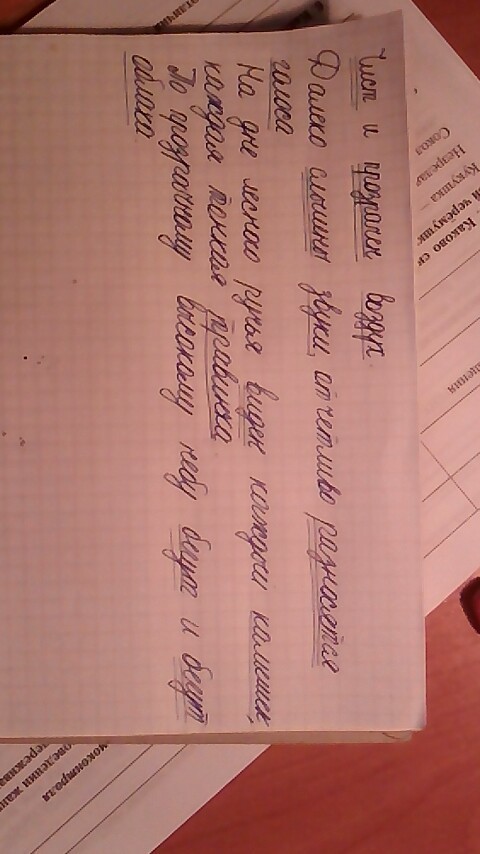 Чист и прозрачен воздух.
Далеко слышны звуки, отчетливо разносятся
голоса
На дне лесного ручья виден каждый камешек,
каждая тонкая травинка
По прозрачному высокому небу бегут и бегут
облака
Сокол
Кукушка
Каково